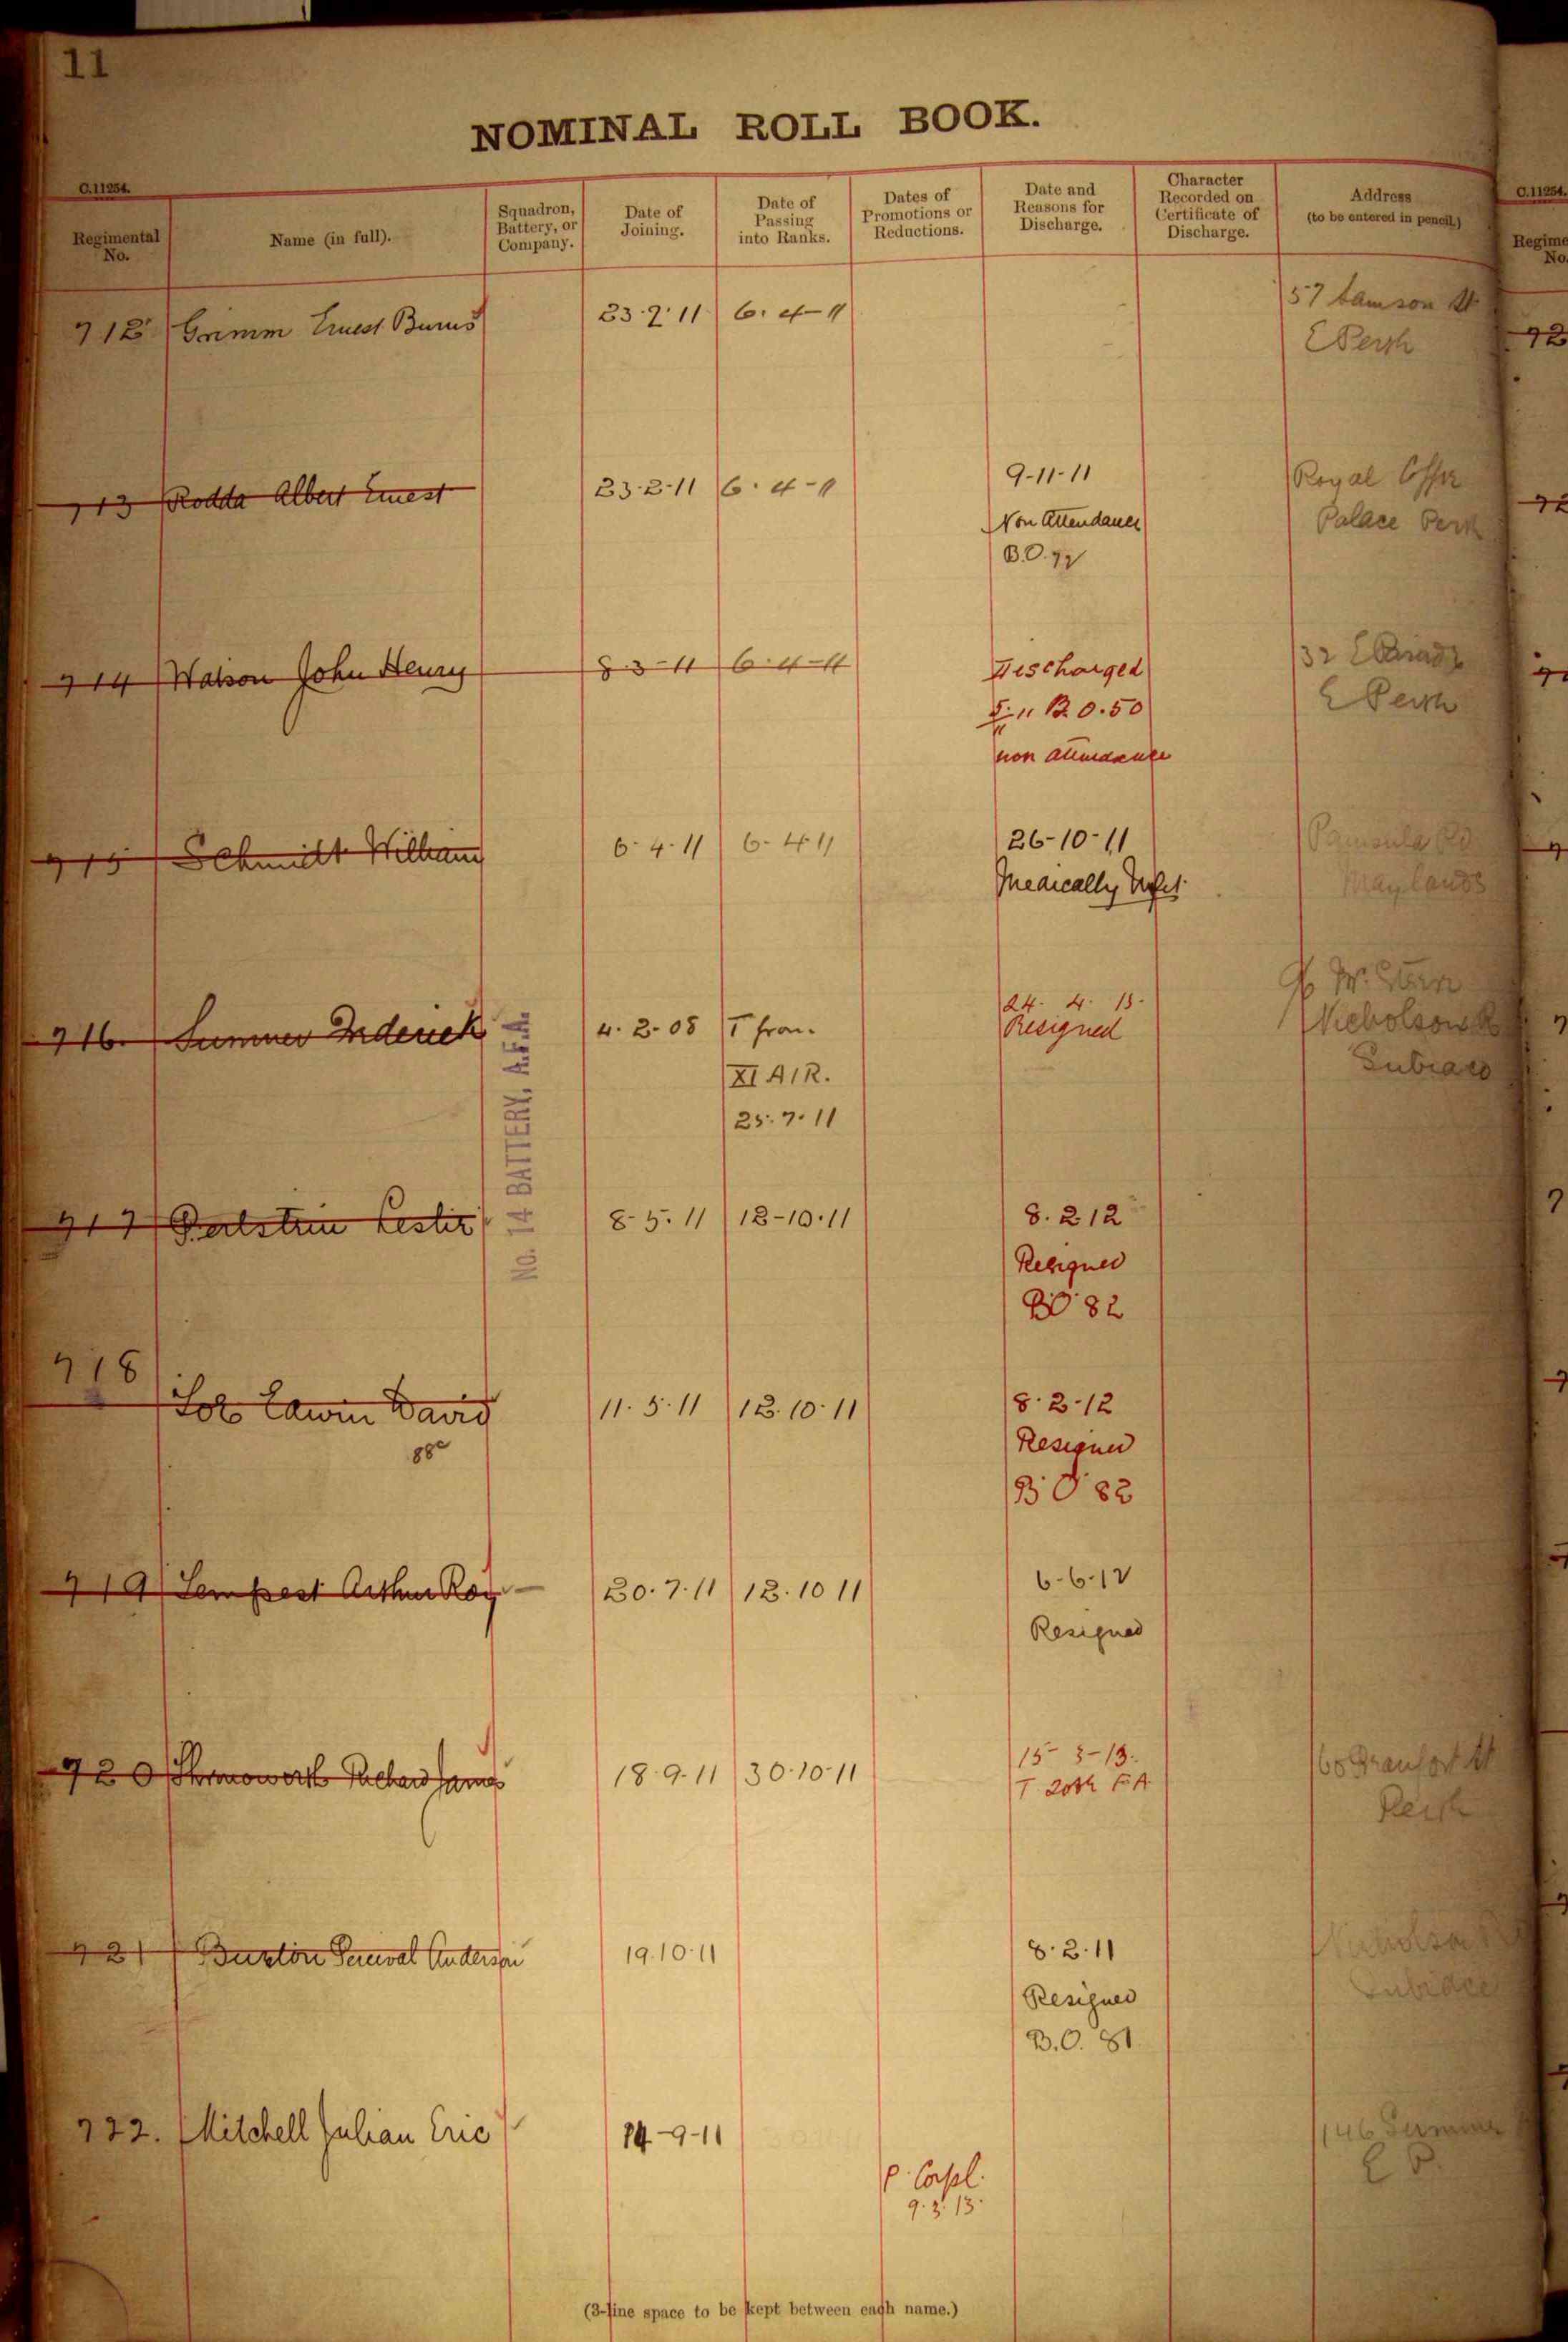 11
NOMINAL ROLL BOOK.
C.11254.
Regimental No.
Name (in full).
Squadron, Battery, or Company.
Date of Joining.
Date of Passing into Ranks.
Dates of Promotions or Reductions.
Date and Reasons for Discharge.
Character Recorded on Certificate of Discharge.
Address (to be entered in pencil.)
C.11254.
712 Grimm Ernest Burns 23.2.11 6.4-11 57 St
E Perth
713 Rodda Albert Ernest 23.2.11 6.4-11 9-11-11 Royal
Non Attendance Palace Perth
B.O. 72
714 Watson John Henry 8-3-11 6.4-11 Discharged 32
B O.50 E Perth
non attendance
715 Schmidt William 6.4.11 6.4.11 26-10-11
Medically Unfit Maylands
716. Sumner Frederick 4.2.08 T from 24.4.13. W.
XI A I R. Resigned Nicholson R
25.7.11 Subiaco
No. 14 BATTERY, A.F.A.
717 Perlstein Lester 8-5.11 12-10.11 8.2 12
Resigned
BO 82
718
Edwin David 11.5.11 12.10.11 8.2.12
Resigned
B O 82
719 Tempest Arthur Roy 20.7.11 12.10 11 6-6-12
Resigned
720 Richard James 18.9.11 30.10.11 15-3-13. St
T 20th F A Perth
721 Burton Percival Anderson 19.10.11 8.2.11
Resigned
B.O. 81
722. Mitchell Julian Eric 14-9-11 146
P Corpl. E P.
9.3.13.
(3-line space to be kept between each name.)